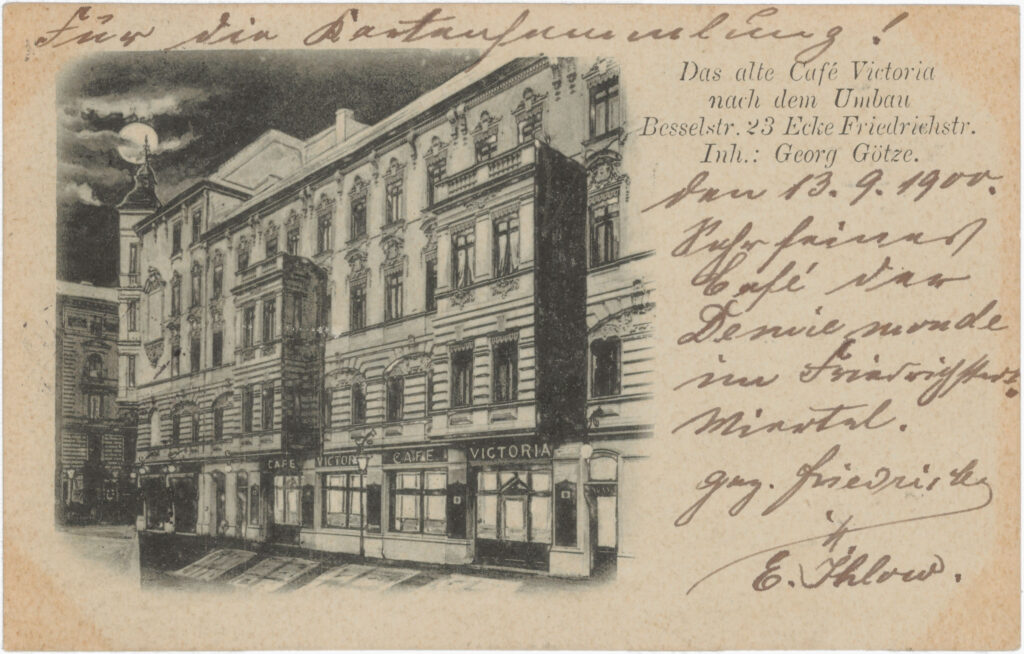 Für die Kartensammlung!
Das alte Café Victoria
nach dem Umbau
Besselstr. 23 Ecke Friedrichstr.
Inh.: Georg Götze.
den 13. 9. 1900.
Sehr feines
Café der
Demie monde
im Friedrichstadt
Viertel.
gez. Friedrich
E. Ihlow.
CAFE VICTORIA CAFE VICTORIA